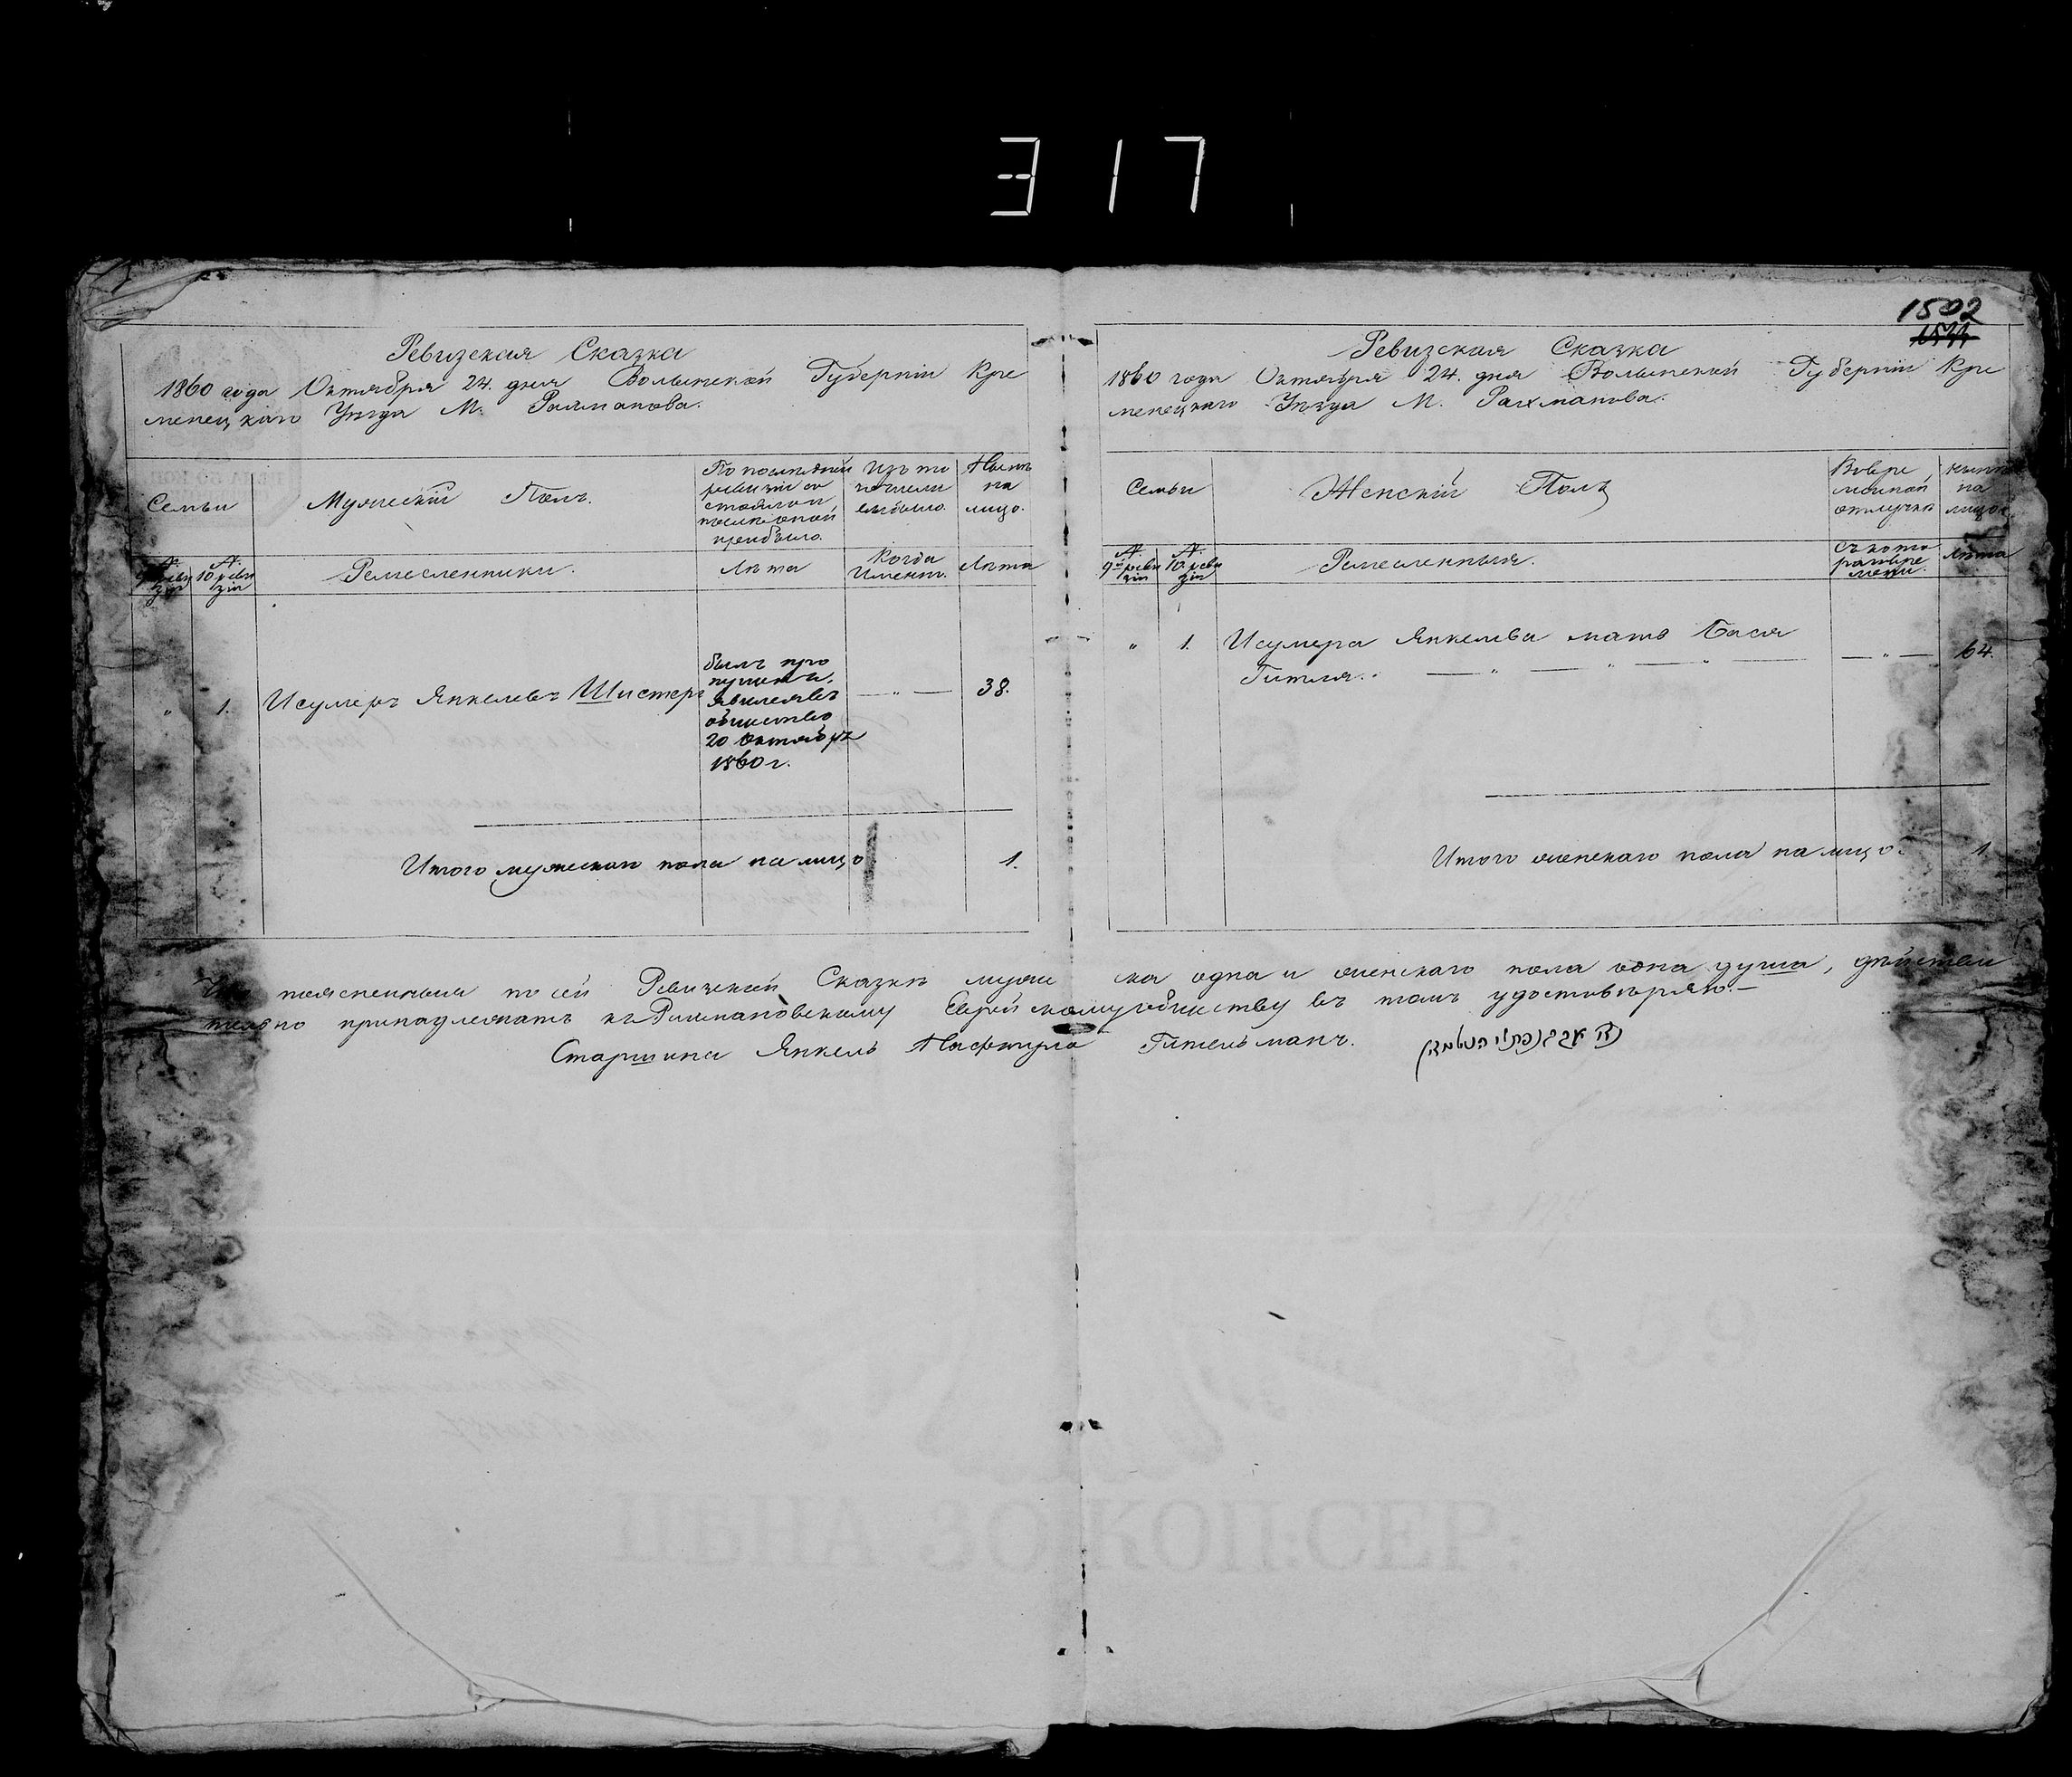 317
1502
Ревизская Сказка
1860 года Октября 24. дня Волынской Губерніи Кре
менецкаго Уѣзда М. Рахманова.
Семьи
Мужескій Полъ.
По послѣдней
ревизіи со
стояло и
послѣ оной
прибыло.
Изъ то
го числа
выбыло.
Нынѣ
на
лицо.
№.
9 реви
зіи
№.
10 реви
зіи
Ремесленники.
Лѣта
Когда
Именно.
Лѣта
„ 1. Исумеръ Янкелевъ Шистеръ
былъ про
пущенъ
явился въ
общество
20 Октября
1860 г.
— „ — 38.
Итого мужескаго пола на лицо 1.
Ревизская Сказка
1860 года Октября 24. дня Волынской Губерніи Кре
менецкаго Уѣзда М. Рахманова.
Семьи
Женскій Полъ
Во вре
менной
отлучкѣ
нынѣ
на
лицо.
№.
9й реви
зіи
№.
10 реви
зіи
Ремесленныя.
Съ кото
раго вре
мени.
Лѣта
„ 1. Исумера Янкелева мать Бася
Гитля. — „ — „ — „ — — „ — 64.
Итого женскаго пола на лицо 1.
поясненныя по сей Ревизской Сказкѣ муже ска одна и женскаго пола одна душа, дѣйстви
тельно принадлежатъ къ Рахмановскому Еврейскому обществу въ томъ удостовѣряю.—
Старшина Янкель Нафтула Гительманъ.
ЦѢНА 30 КОП: СЕР: